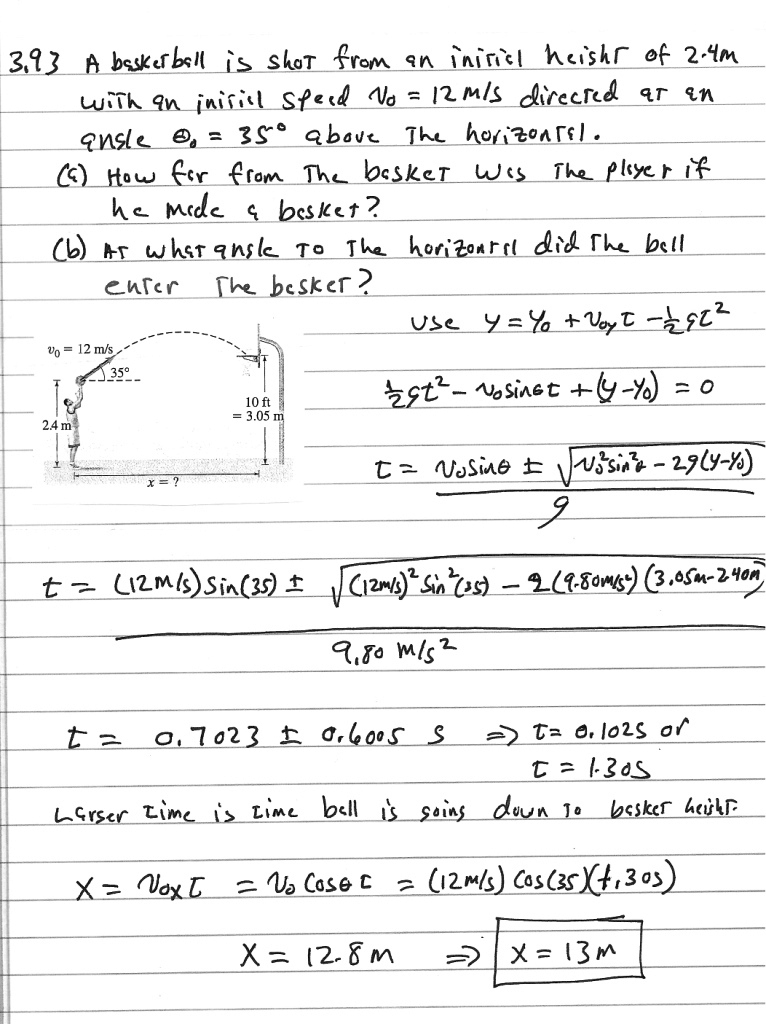 3.93 A basketball is shot from an initial height of 2.4m
with an initial speed v₀ = 12 m/s directed at an
angle θ₀ = 35° above the horizontal.
(a) How far from the basket was the player if
he made a basket?
(b) At what angle to the horizontal did the ball
enter the basket?
Use y = y₀ + v₀y t − ½gt²
v₀ = 12 m/s
35°
2.4 m
10 ft
= 3.05 m
x = ?
½gt² − v₀sinθt + (y−y₀) = 0
t = v₀sinθ ± √v₀²sin²θ − 2g(y−y₀)
g
t = (12m/s)sin(35) ± √(12m/s)² sin²(35) − 2(9.80m/s²)(3.05m−2.40m)
9.80 m/s²
t = 0.7023 ± 0.6005 s ⇒ t = 0.102s or
t = 1.30s
Larger time is time ball is going down to basket height.
x = v₀x t = v₀ cosθ t = (12m/s) cos(35)(1.30s)
x = 12.8m ⇒ x = 13m